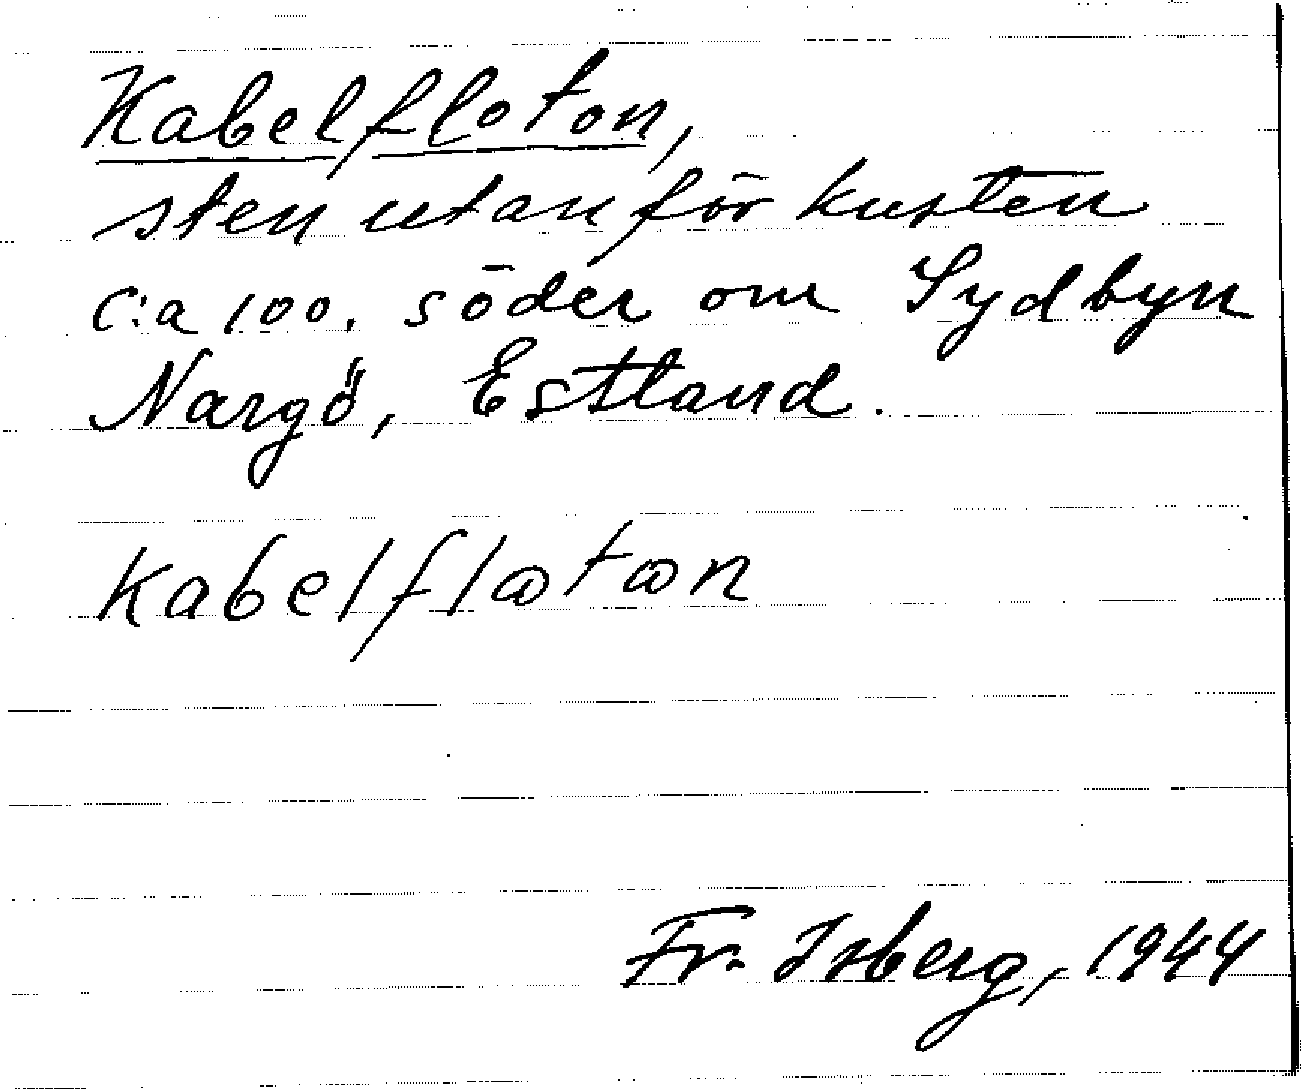 Kabelfloton,
sten utanför kusten
c:a 100. söder om Sydbyn
Nargö, Estland.
kabelflatan
Fr. Isberg, 1944